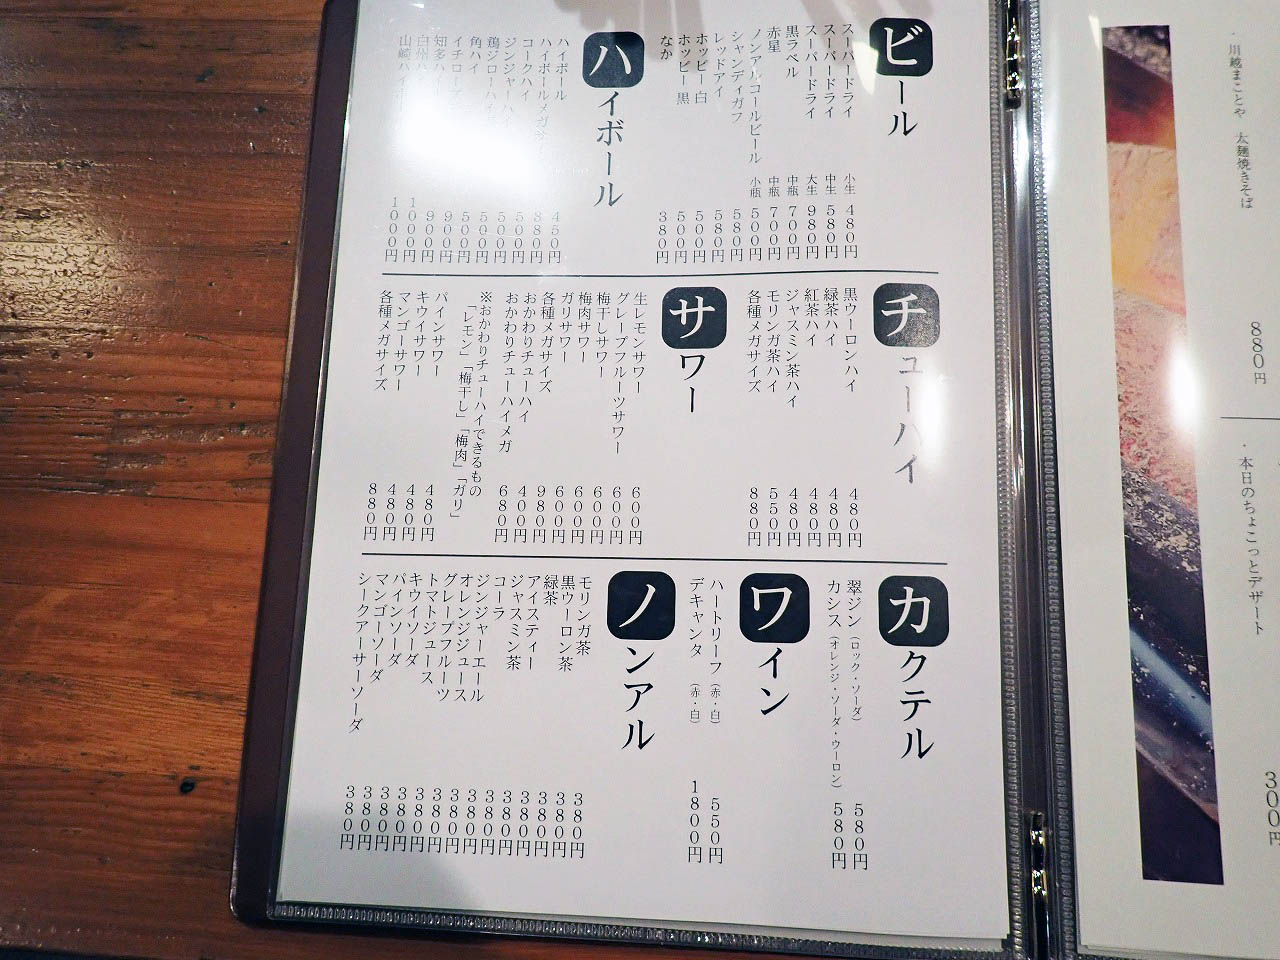 ・川越まことや 太麺焼きそば 880円
・本日のちょこっとデザート 300円
ビール
スーパードライ 小生 480円
スーパードライ 中生 580円
スーパードライ 大生 980円
黒ラベル 中瓶 700円
赤星 中瓶 700円
ノンアルコールビール 小瓶 500円
シャンディガフ 580円
レッドアイ 580円
ホッピー白 500円
ホッピー黒 500円
なか 380円
ハイボール
ハイボール 450円
ハイボールメガ 880円
コークハイ 500円
ジンジャーハイ 500円
鶏ジローハイ 500円
角ハイ 500円
イチロー 900円
知多ハイ 900円
白州ハイ 1000円
山崎ハイ 1000円
チューハイ
黒ウーロンハイ 480円
緑茶ハイ 480円
紅茶ハイ 480円
ジャスミン茶ハイ 480円
モリンガ茶ハイ 550円
各種メガサイズ 880円
サワー
生レモンサワー 600円
グレープフルーツサワー 600円
梅干しサワー 600円
梅肉サワー 600円
ガリサワー 600円
各種メガサイズ 980円
おかわりチューハイ 400円
おかわりチューハイメガ 680円
※おかわりチューハイできるもの
「レモン」「梅干し」「梅肉」「ガリ」
パインサワー 480円
キウイサワー 480円
マンゴーサワー 480円
各種メガサイズ 880円
カクテル
翠ジン（ロック・ソーダ） 580円
カシス（オレンジ・ソーダ・ウーロン） 580円
ワイン
ハートリーフ（赤・白） 550円
デキャンタ（赤・白） 1800円
ノンアル
モリンガ茶 380円
黒ウーロン茶 380円
緑茶 380円
アイスティー 380円
ジャスミン茶 380円
コーラ 380円
ジンジャーエール 380円
オレンジジュース 380円
グレープフルーツ 380円
トマトジュース 380円
キウイソーダ 380円
パインソーダ 380円
マンゴーソーダ 380円
シークアーサーソーダ 380円